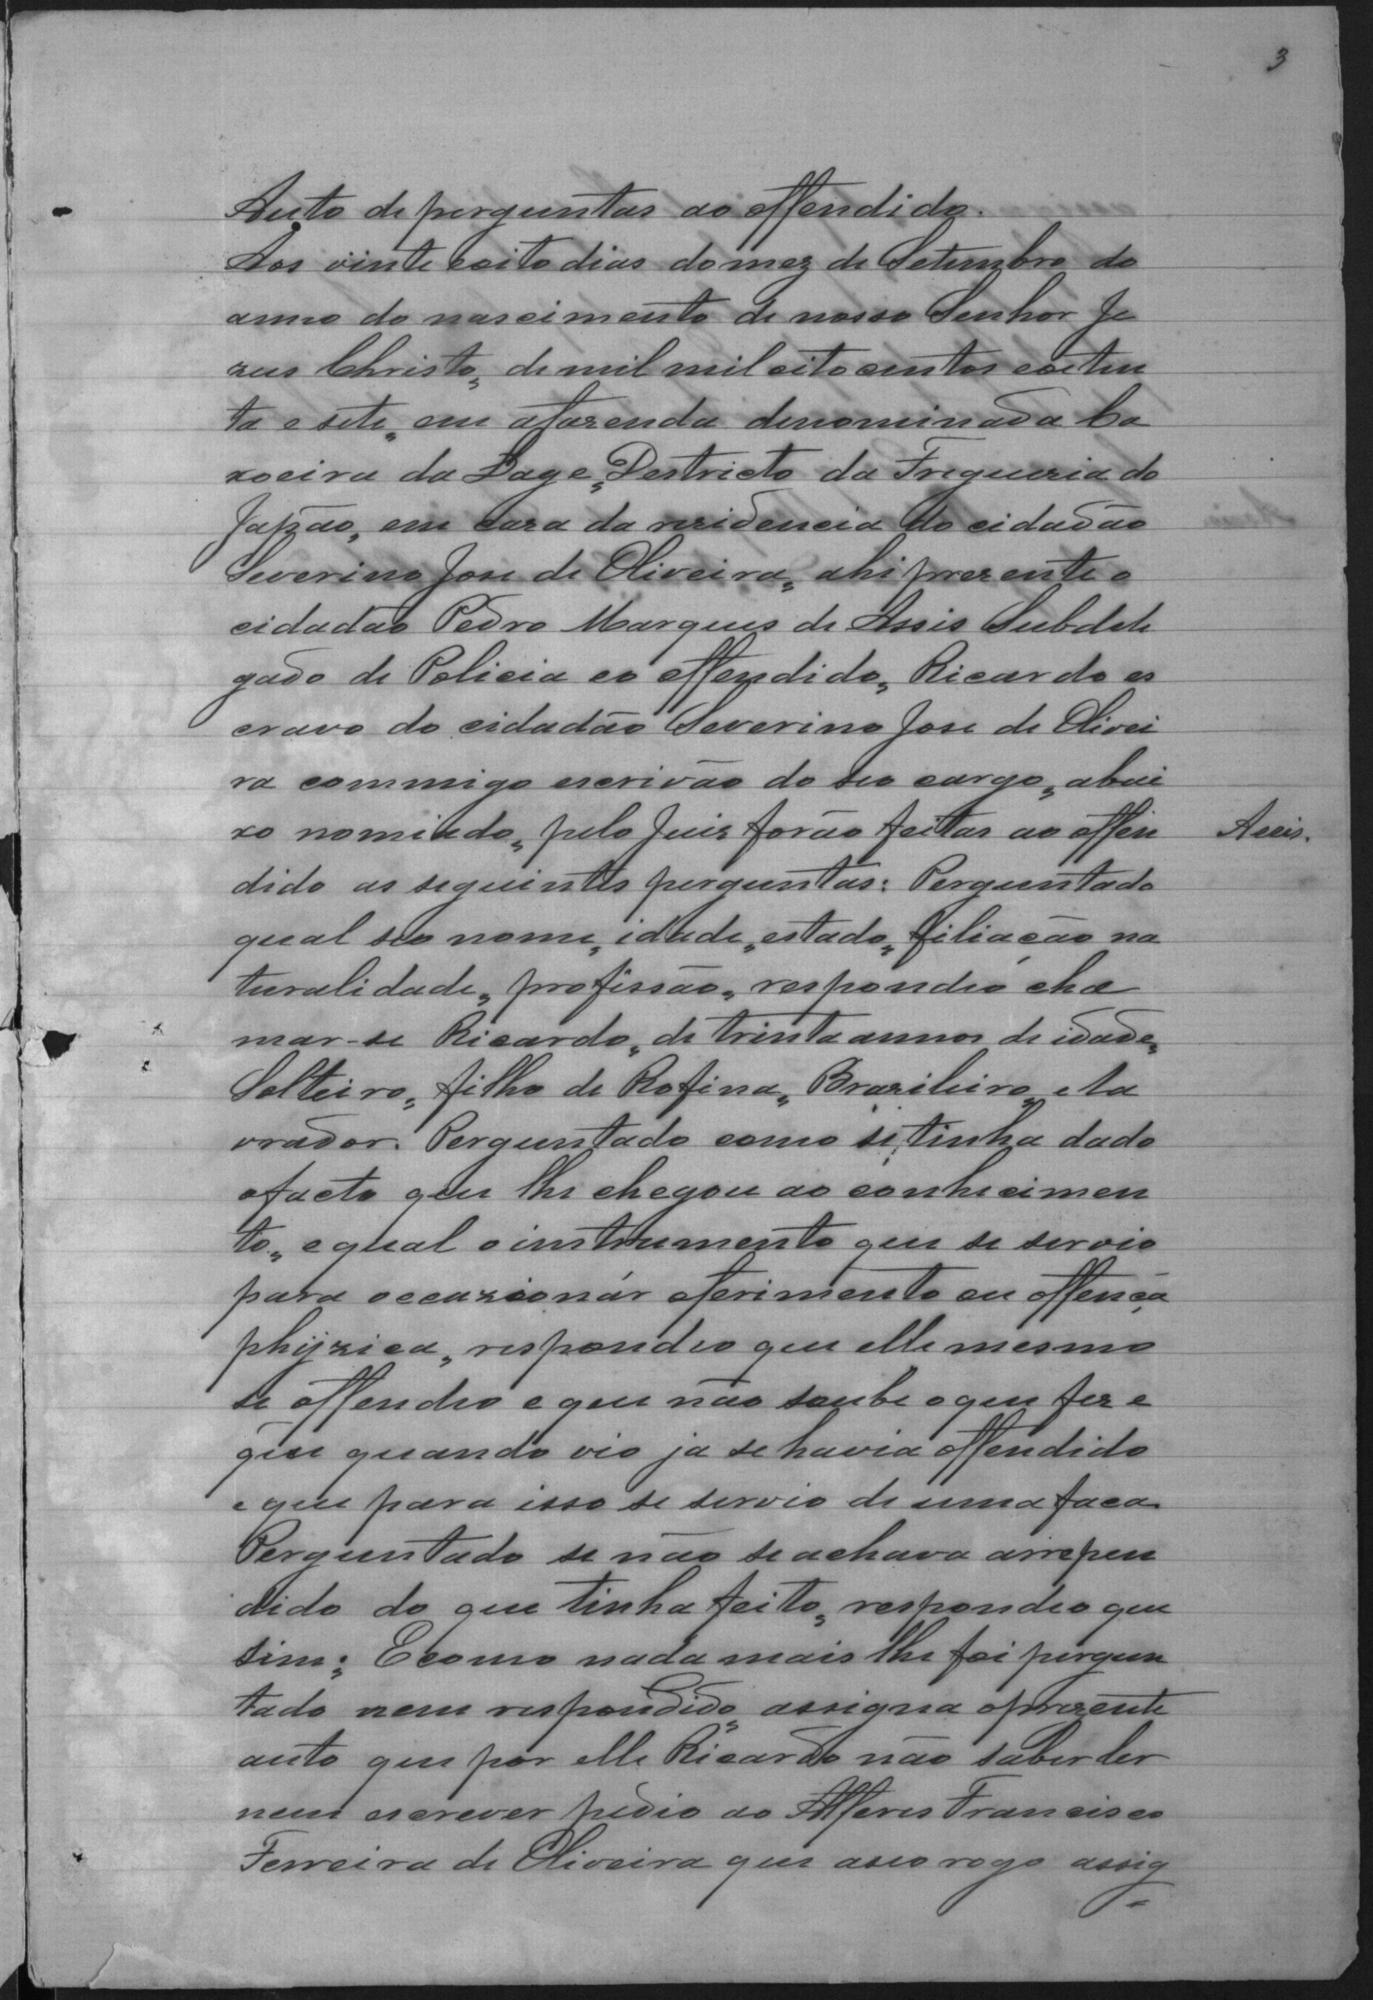 3
Auto de perguntas ao offendido.
Aos vinte eoito dias do mez de Setembro do
anno do nascimento de nosso Senhor Je
zus Christo, de mil mil oito centos eoiten
ta e sete, em afazenda denominada Ca
xoeira da Lage, Destricto da Freguezia do
Japão, em caza da rezidencia do cidadão
Severino Jose de Oliveira, ahi prezente o
cidadão Pedro Marques de Assis Subdele
gado de Policia eo offendido, Ricardo es
cravo do cidadão Severino Jose de Olivei
ra commigo escrivão do seo cargo, abai
xo nomiado, pelo Juiz forão feitas ao offen
Assis.
dido as seguintes perguntas: Perguntado
qual seo nome, idade, estado, filiação na
turalidade, profissão, respondeo cha
mar-se Ricardo, de trinta annos de idade,
Solteiro, filho de Rofina, Brazileiro, e la
vrador. Perguntado como se tinha dado
ofacto que lhe chegou ao conhecimen
to, e qual o instrumento que se servio
para occazionár oferimento ou offença
phyzica, respondeo que elle mesmo
se offendeo e que não soube oque fez e
que quando vio ja se havia offendido
e que para isso se servio de uma faca.
Perguntado se não se achava arrepen
dido do que tinha feito, respondeo que
sim; Ecomo nada mais lhe foi pergun
tado nem respondido, assigna oprezente
auto que por elle Ricardo não saber ler
nem escrever pedio ao Alferes Francisco
Ferreira de Oliveira que aseo rogo assig